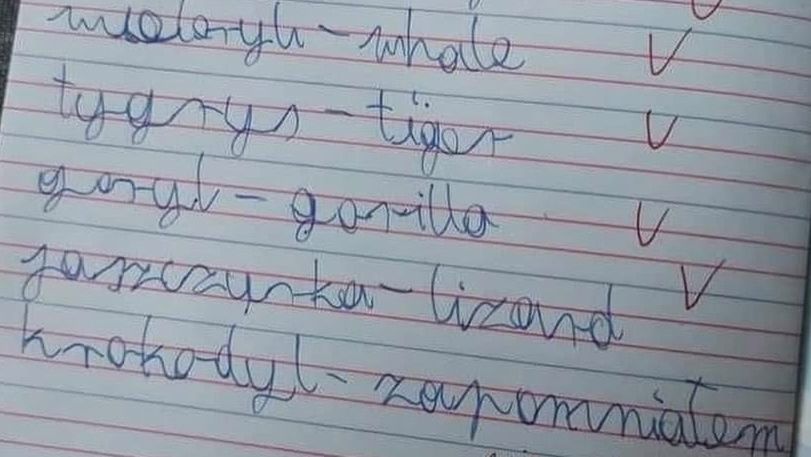 wieloryb - whale V
tygrys - tiger V
goryl - gorilla V
jaszczurka - lizard V
krokodyl - zapomniałem